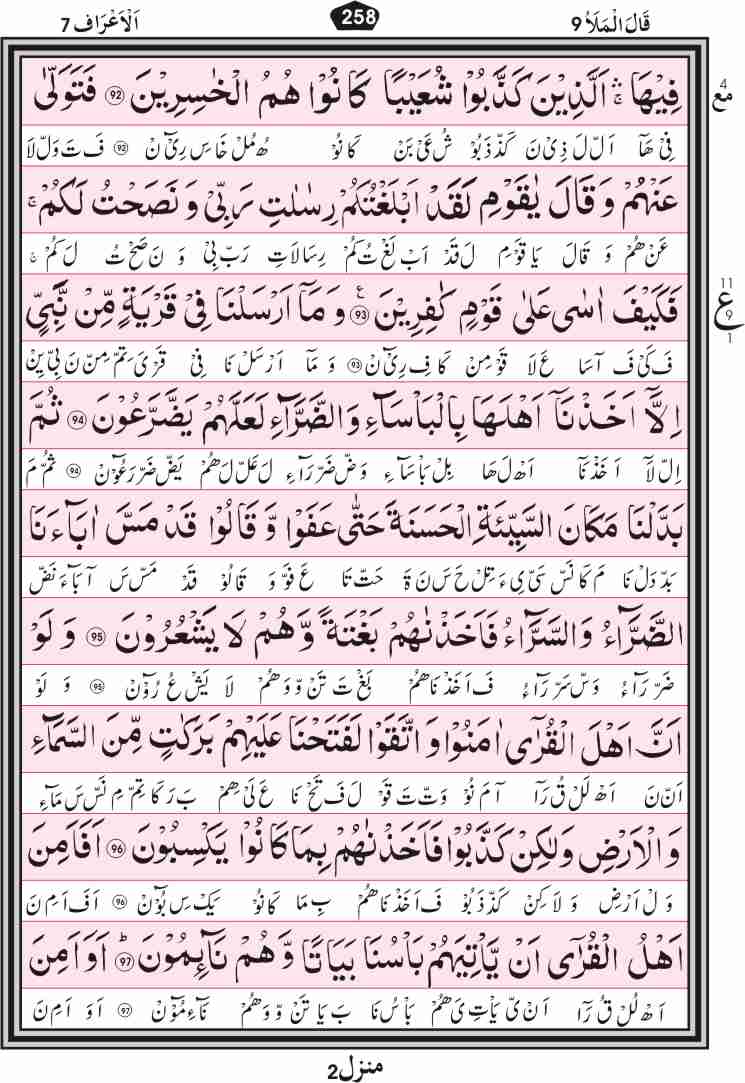 قَالَ الْمَلَاُ 9 258 اَلْاَعْرَاف 7
فِيْهَا ۛۚ اَلَّذِيْنَ كَذَّبُوْا شُعَيْبًا كَانُوْا هُمُ الْخٰسِرِيْنَ ﴿92﴾ فَتَوَلّٰى
4
مع
فِىْ هَآ اَلْ لَ ذِىْ نَ كَذْ ذَبُوْ شُ عَىْ بَنْ كَا نُوْ هُمُلْ خَا سِ رِىْٓ نْ ﴿92﴾ فَ تَ وَلْ لَا
عَنْهُمْ وَ قَالَ يٰقَوْمِ لَقَدْ اَبْلَغْتُكُمْ رِسٰلٰتِ رَبِّىْ وَ نَصَحْتُ لَكُمْ ۚ
عَنْ هُمْ وَ قَالَ يَا قَوْمِ لَ قَدْ اَبْ لَغْ تُ كُمْ رِسَا لَا تِ رَبْ بِىْ وَ نَ صَحْ تُ لَ كُمْ ۚ
فَكَيْفَ اٰسٰى عَلٰى قَوْمٍ كٰفِرِيْنَ ﴿93﴾ ع وَ مَاۤ اَرْسَلْنَا فِىْ قَرْيَةٍ مِّنْ نَّبِىٍّ
11
ع
9
1
فَ كَىْ فَ آسَا عَ لَا قَوْ مِنْ كَا فِ رِىْٓ نْ ﴿93﴾ وَ مَآ اَرْ سَلْ نَا فِىْ قَرْ ىَ تِمْ مِنْ نَ بِىْ يِنْ
اِلَّاۤ اَخَذْنَاۤ اَهْلَهَا بِالْبَاْسَآءِ وَالضَّرَّآءِ لَعَلَّهُمْ يَضَّرَّعُوْنَ ﴿94﴾ ثُمَّ
اِلْ لَآ اَ خَذْ نَآ اَهْ لَ هَا بِلْ بَاْ سَآءِ وَضْ ضَرْ رَآءِ لَ عَلْ لَ هُمْ يَضْ ضَرْ رَعُوْٓنْ ﴿94﴾ ثُمْ مَ
بَدَّلْنَا مَكَانَ السَّيِّئَةِ الْحَسَنَةَ حَتّٰى عَفَوْا وَّ قَالُوْا قَدْ مَسَّ اٰبَآءَنَا
بَدْ دَلْ نَا مَ كَا نَسْ سَىْ ىِ ءَ تِلْ حَ سَ نَ ةَ حَتْ تَا عَ فَوْ وَ قَا لُوْ قَدْ مَسْ سَ آبَآءَ نَضْ
الضَّرَّآءُ وَالسَّرَّآءُ فَاَخَذْنٰهُمْ بَغْتَةً وَّهُمْ لَا يَشْعُرُوْنَ ﴿95﴾ وَ لَوْ
ضَرْ رَآءُ وَسْ سَرْ رَآءُ فَ اَ خَذْ نَاهُمْ بَغْ تَ تَنْ وَّوَهُمْ لَا يَشْ عُ رُوْٓنْ ﴿95﴾ وَ لَوْ
اَنَّ اَهْلَ الْقُرٰٓى اٰمَنُوْا وَ اتَّقَوْا لَفَتَحْنَا عَلَيْهِمْ بَرَكٰتٍ مِّنَ السَّمَآءِ
اَنْ نَ اَهْ لَلْ قُ رَآ آ مَ نُوْ وَتْ تَ قَوْ لَ فَ تَحْ نَا عَ لَىْ هِمْ بَ رَ كَا تِمْ مِ نَسْ سَ مَآءِ
وَ الْاَرْضِ وَلٰكِنْ كَذَّبُوْا فَاَخَذْنٰهُمْ بِمَا كَانُوْا يَكْسِبُوْنَ ﴿96﴾ اَفَاَمِنَ
وَ لْ اَرْضِ وَ لَا كِنْ كَذْ ذَبُوْ فَ اَ خَذْ نَا هُمْ بِ مَا كَا نُوْ يَكْ سِ بُوْٓنْ ﴿96﴾ اَ فَ اَ مِ نَ
اَهْلُ الْقُرٰٓى اَنْ يَّاْتِيَهُمْ بَاْسُنَا بَيَاتًا وَّهُمْ نَآئِمُوْنَ ﴿97﴾ؕ اَوَاَمِنَ
اَهْ لُلْ قُ رَآ اَنْ ىْ يَاْ تِ ىَ هُمْ بَاْ سُ نَا بَ يَا تَنْ وَّوَهُمْ نَآءِ مُوْٓنْ ﴿97﴾ اَ وَ اَ مِ نَ
منزل2